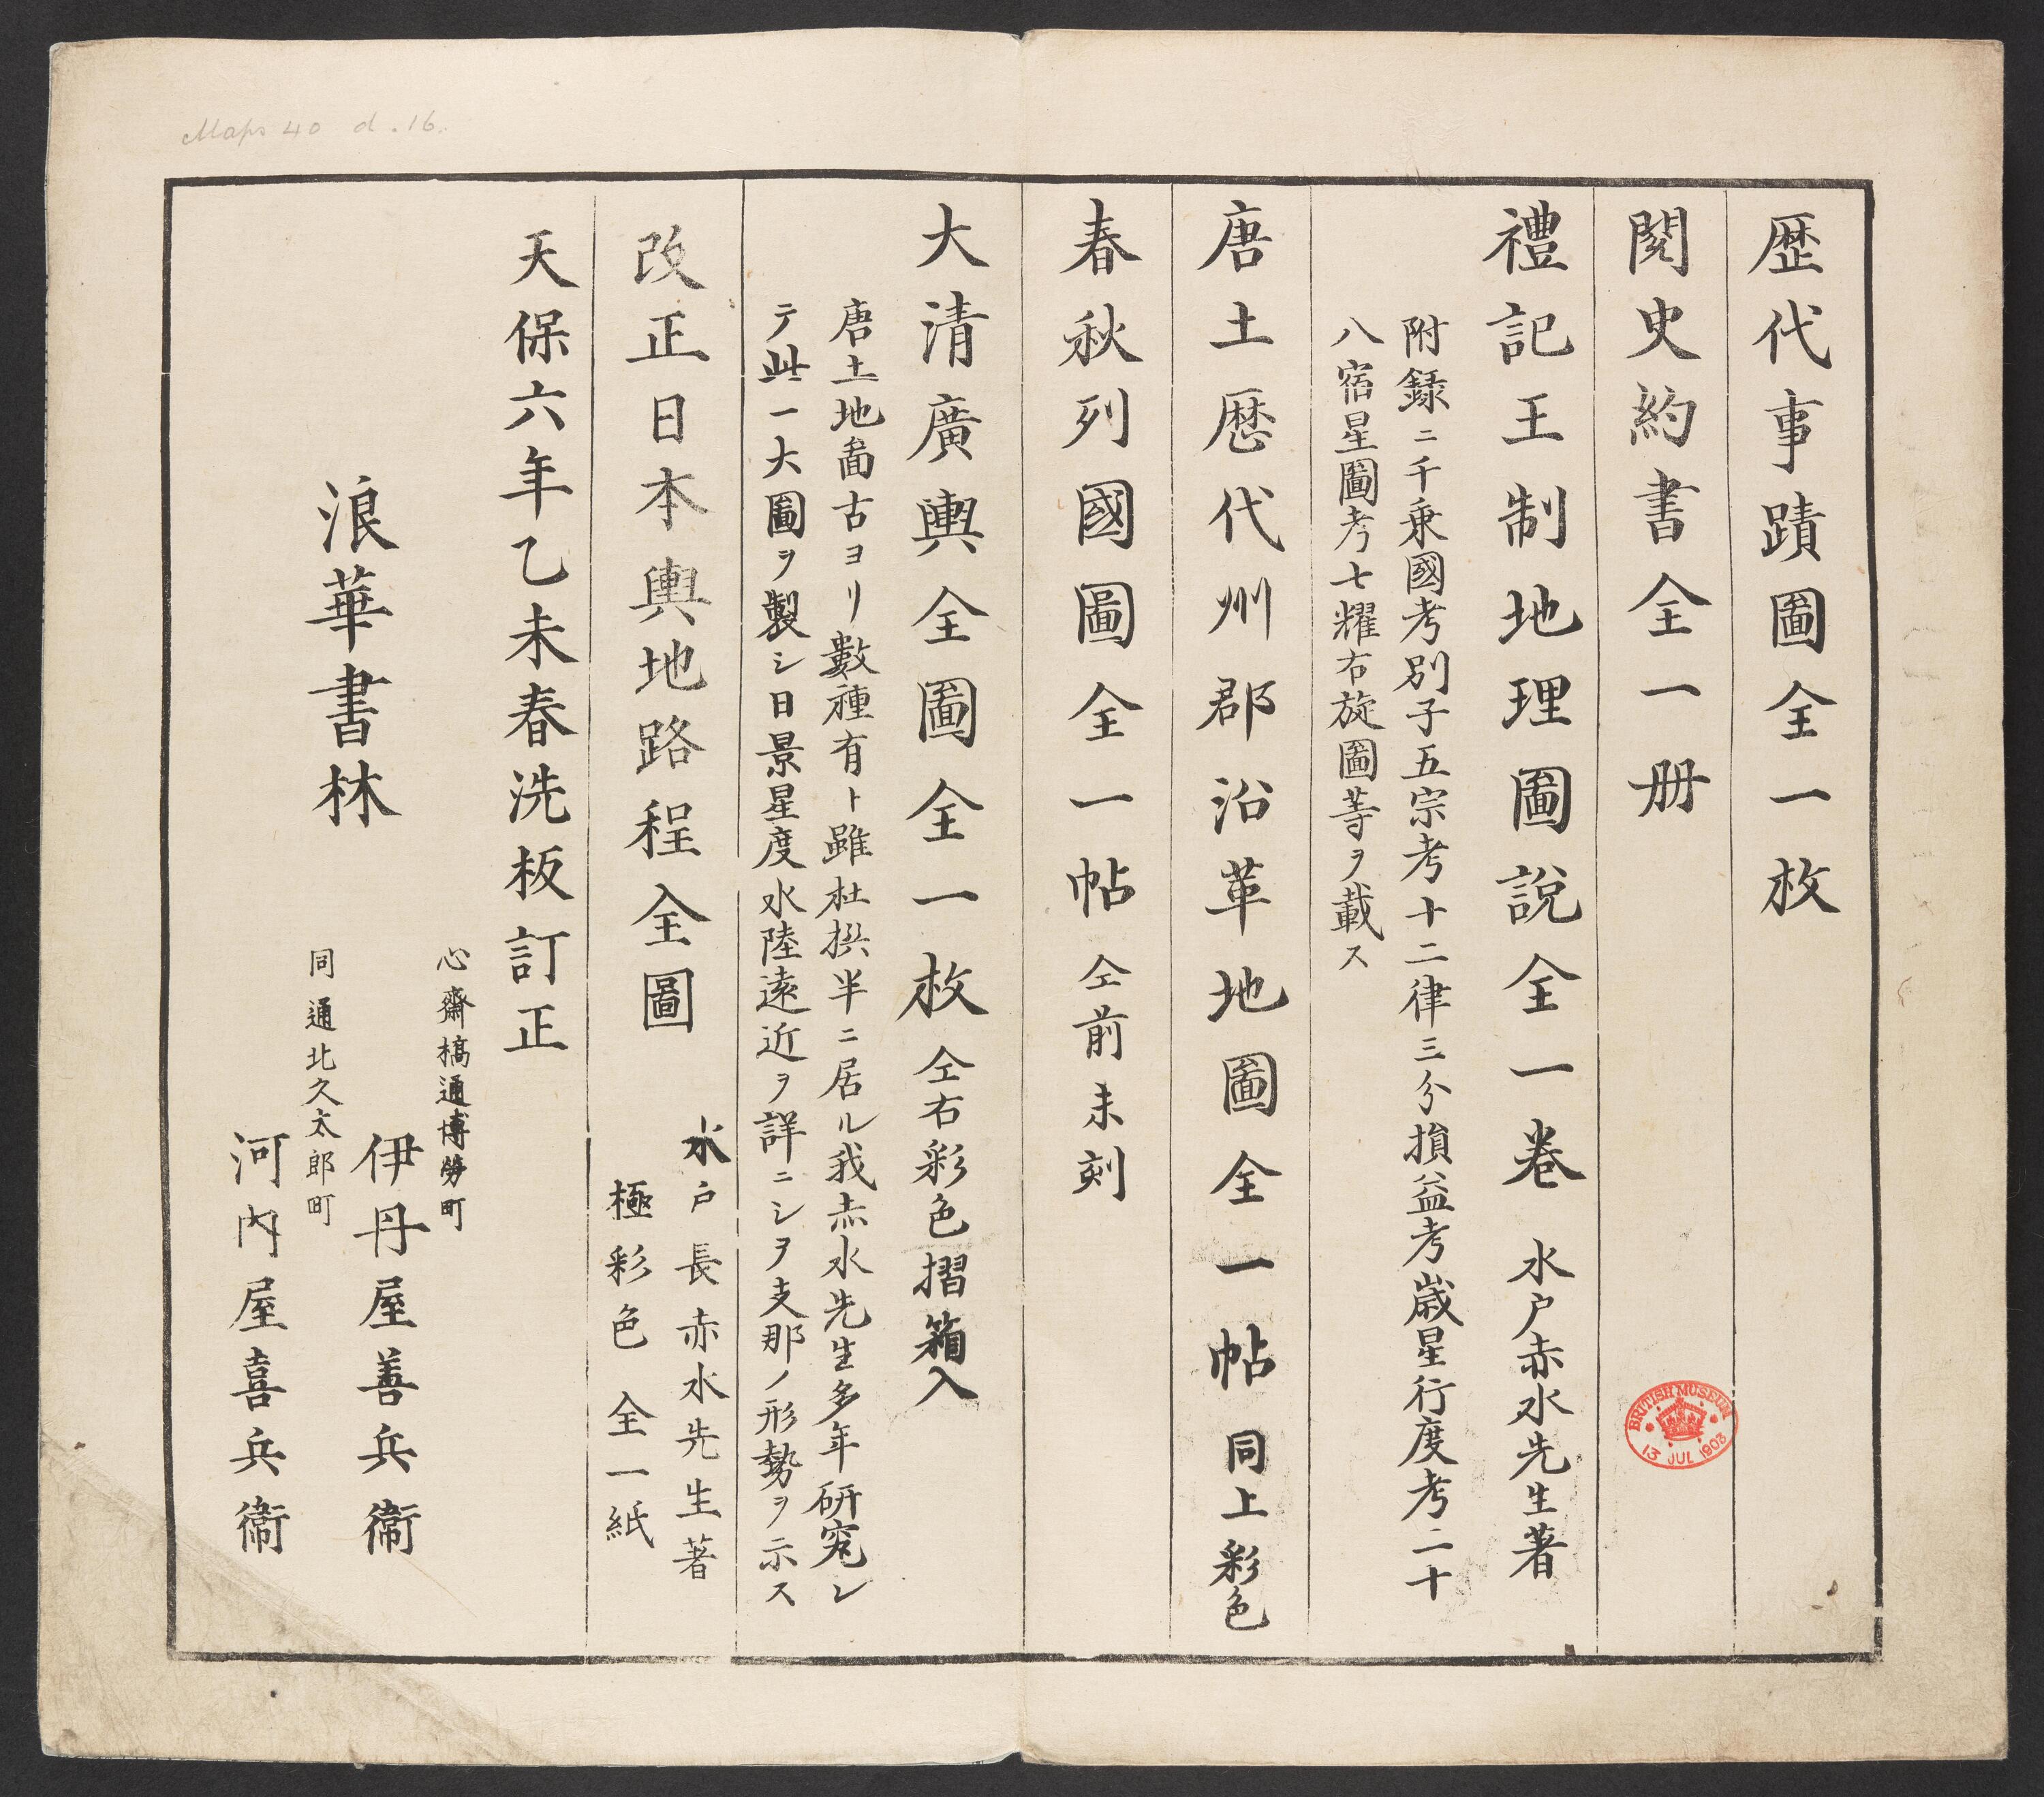 歴代事蹟圖全一枚
閲史約書全一册
禮記王制地理圖説全一巻 水戸赤水先生著
附録ニ千乗國考別子五宗考十二律三分損益考歳星行度考二十
八宿星圖考七耀右旋圖等ヲ載ス
唐土歴代州郡沿革地圖全一帖 同上彩色
春秋列國圖全一帖 仝前未刻
大清廣輿全圖全一枚 仝右彩色摺箱入
唐土地啚古ヨリ數種有ト雖杜撰半ニ居ル我赤水先生多年研究シ
テ此一大圖ヲ製シ日景星度水陸遠近ヲ詳ニシヲ支那ノ形勢ヲ示ス
改正日本輿地路程全圖
水戸長赤水先生著
極彩色全一紙
天保六年乙未春洗板訂正
浪華書林
心齋橋通博勞町
伊丹屋善兵衞
同通北久太郎町
河内屋喜兵衞
Maps 40 d.16.
BRITISH MUSEUM
13 JUL 1903